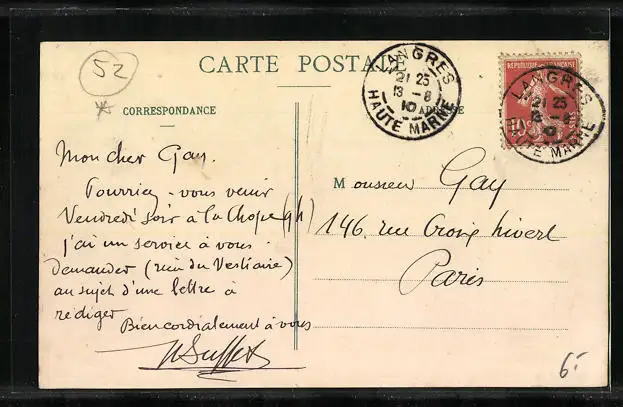 52
CARTE POSTALE
LANGRES
21 25
13 - 8
10
HAUTE MARNE
RÉPUBLIQUE FRANÇAISE
10
LANGRES
21 25
13 - 8
10
HAUTE MARNE
CORRESPONDANCE
Mon cher Gay.
Pourriez-vous venir
Vendredi soir à la Chope (9h)
j'ai un service à vous
demander (rue du Vestiaire)
au sujet d'une lettre à
rédiger
Bien cordialement à vous
Monsieur Gay
146, rue Croix nivert
Paris
6-